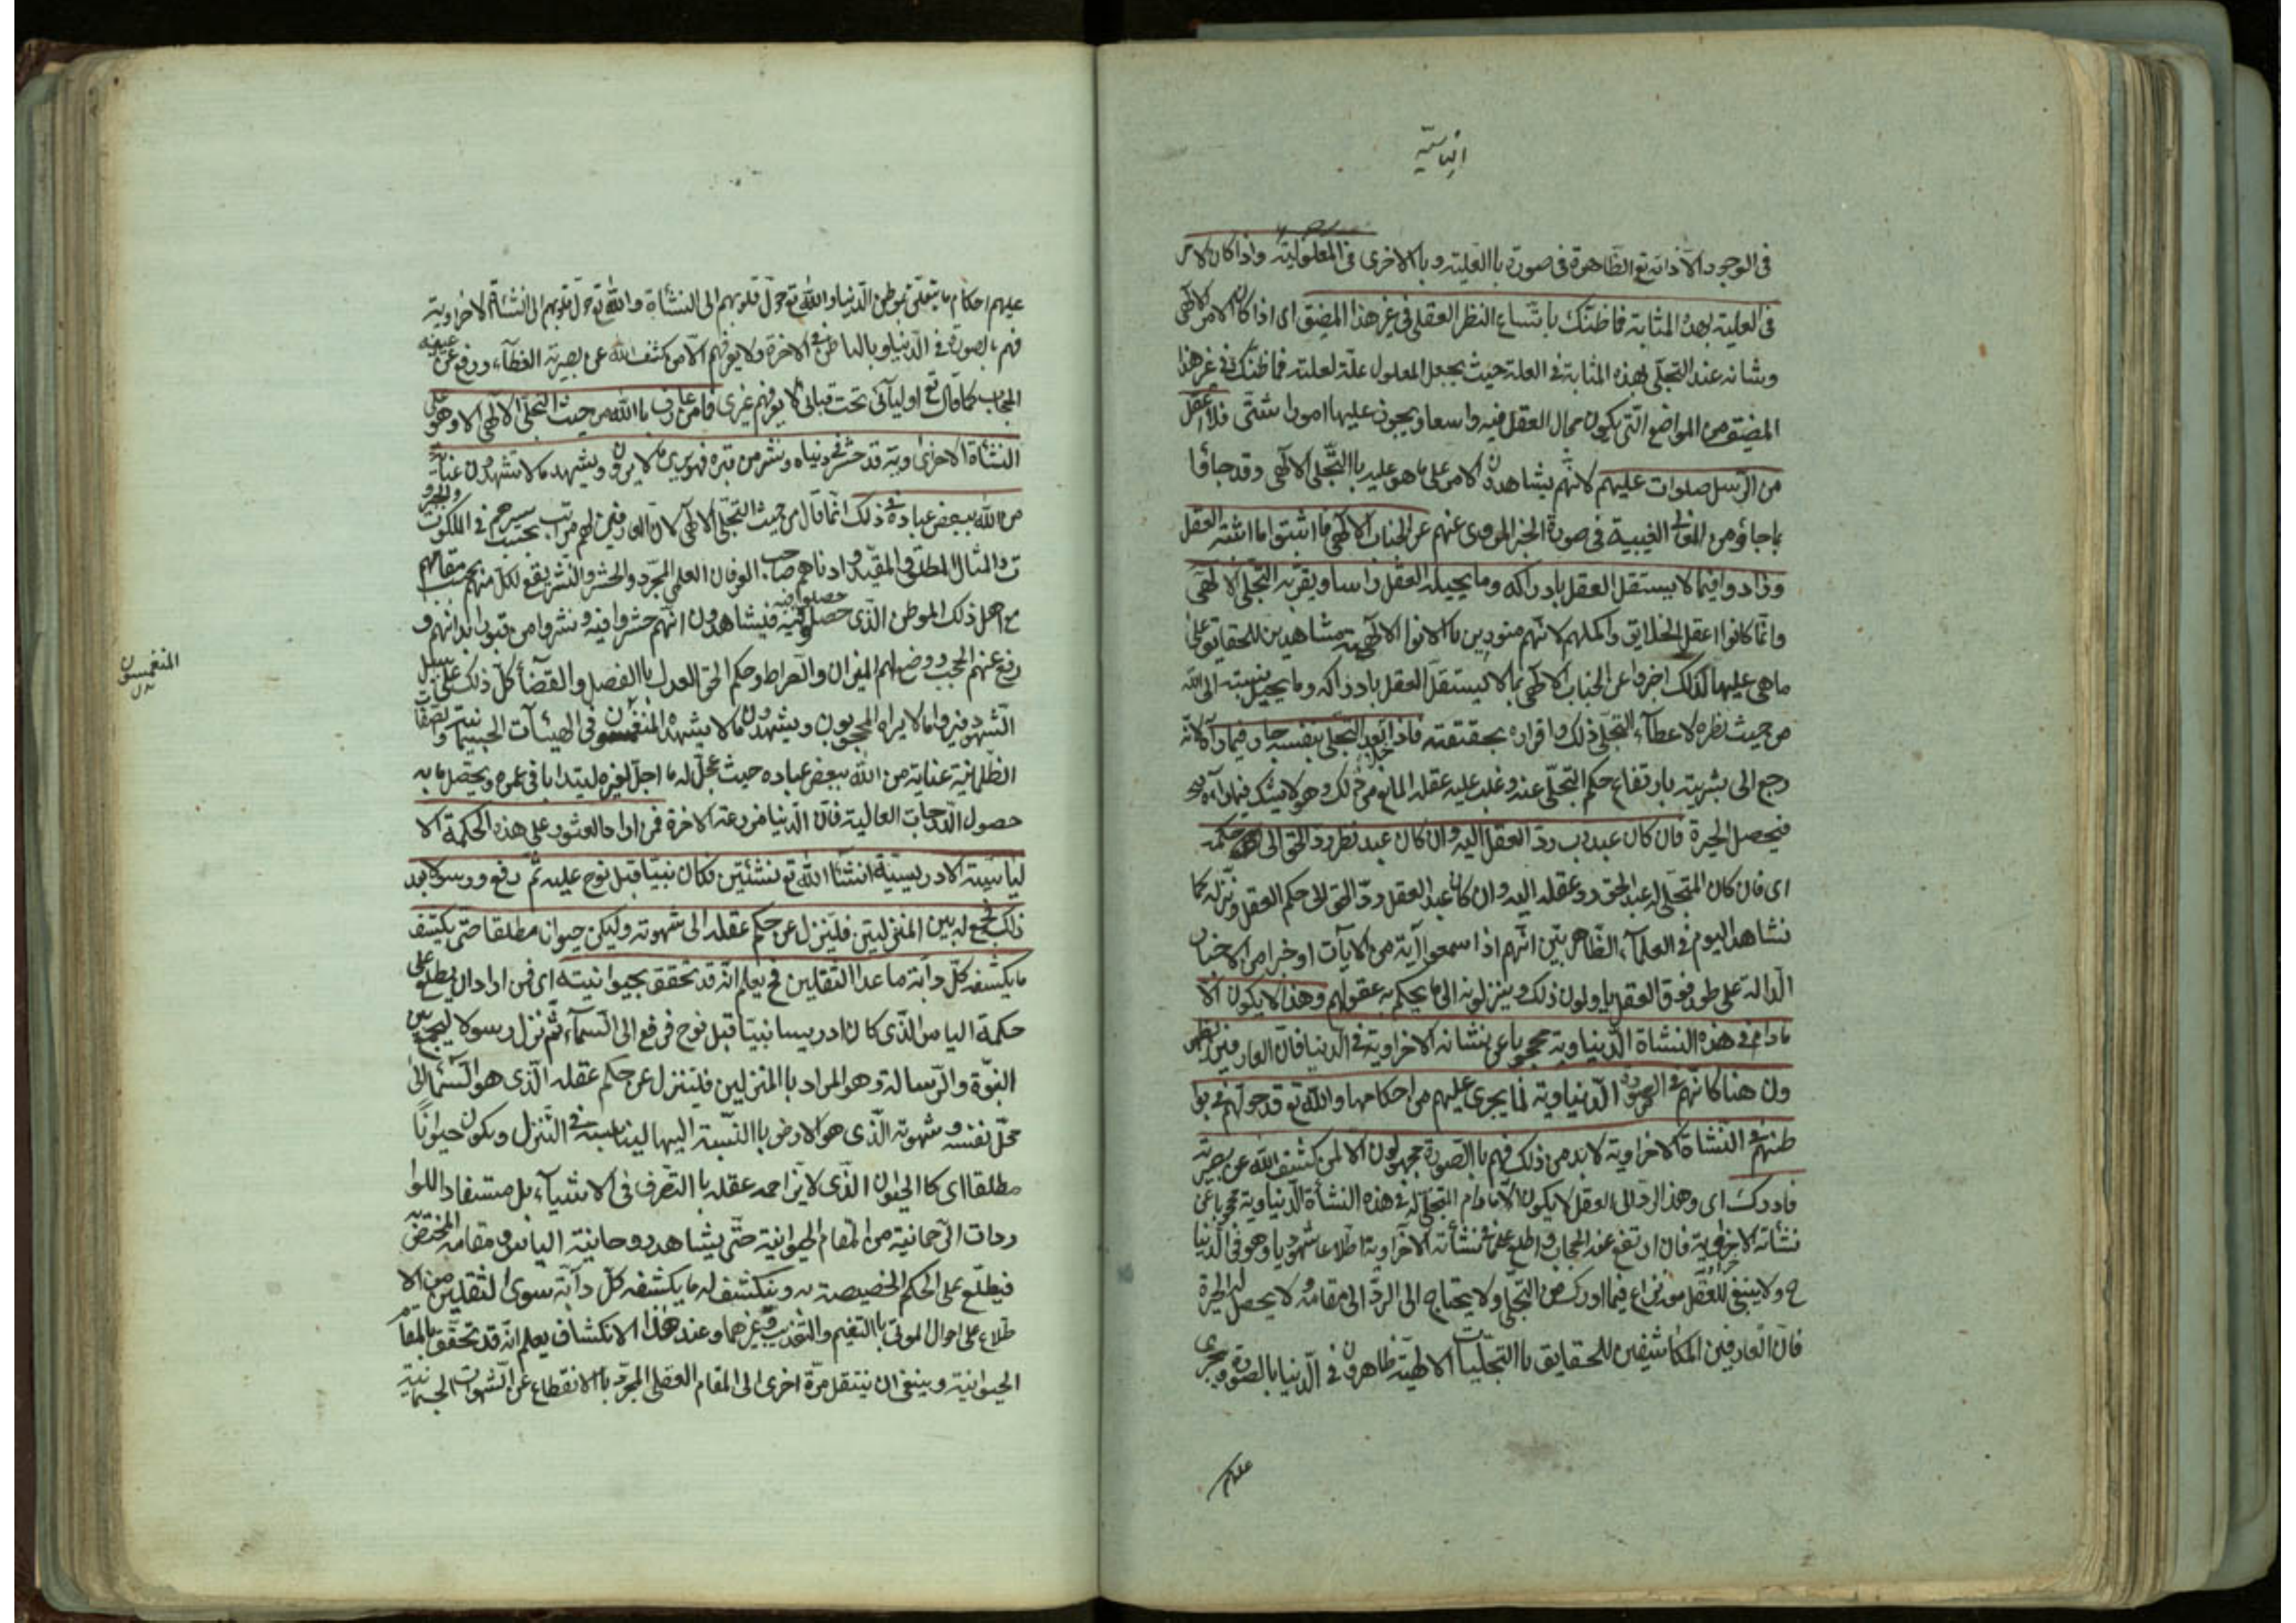 الياسية
في الوجود الا ذاته تع الظاهرة في صورة باالعلية وباالاخرى في المعلولية واذا كان الامر
في العلية بهذه المثابة فما ظنك باتساع النظر العقلي في غير هذا المضيق اى اذا كان الامر الالهى
وشانه عند التجلى بهذه المثابة في العلة حيث يجعل المعلول علة لعلته فما ظنك في غير هذا
المضيق من المواضع التى يكون مجال العقل فيه واسعا ويجوز عليها امورا شتى فلا اعقل
من الرسل صلوات عليهم لانهم يشاهدون الامر على ما هو عليه باالتجلى الالهى وقد جاؤا
بما جاؤ من المعانى الغيبية في صورة الخبر المروى عنهم عن الجناب الالهى فا اثبتوا ما اثبته العقل
وزادوا فيما لا يستقل العقل بادراكه وما يحيله العقل راسا ويقر به التجلى الالهى
وانما كانوا اعقل الخلايق واكملهم لانهم منورين باالانوار الالهية مشاهدين للحقايق على
ماهى عليها لذلك اخبروا عن الجناب الالهى بما لا يستقل العقل بادراكه وما يحيل نسبته الى الله
من حيث نظره لاعطاء التجلى ذلك واقراره بحقيقته فاذا بعد التجلى بنفسه حار فيما رآه لانه
رجع الى بشريته بارتفاع حكم التجلى عنه وغلب عليه عقله المانع من ذلك وهو لا يشك فيما رآه
فيحصل الحيرة فان كان عبد رب رد العقل اليه وان كان عبد نظر رد الحق الى حكمه
اى فان كان المتجلى له عبد الحق رد عقله اليه وان كان عبد العقل رد الحق الى حكم العقل ونزله كما
نشاهد اليوم في العلماء الظاهريين انهم اذا سمعوا آية من الايات او خبرا من الاخبار
الدالة على طور فوق العقل ياولون ذلك وينزلونه الى ما يحكم به عقولهم وهذا لا يكون الا
مادام في هذه النشاة الدنياوية محجوبا عن نشاته الاخراوية في الدنيا فان العارفين يظهر
ون هنا كانهم في الصورة الدنياوية لما يجرى عليهم من احكامها والله تع قد حولهم في بوا
طنهم في النشاة الاخراوية لابد من ذلك فهم باالصورة مجهولون الا لمن كشف الله عن بصيرته
فادرك اى وهذا الرد الى العقل لا يكون الا مادام المتجلى له في هذه النشأة الدنياوية محجوبا عن
نشاته الاخراوية فان ارتفع عنه الحجاب واطلع على نشأته الاخراوية اطلاعا شهوديا وهو في الدنيا
ح ولا يبقى للعقل نزاع فيما ادرك من التجلى ولا يحتاج الى الرد الى مقامه ولا يحصل له الحيرة
فان العارفين المكاشفين للحقايق باالتجليات الالهية ظاهرون في الدنيا بالصورة ويجرى
عليهم
عليهم احكام ما يتعلق بموطن الدنيا والله تع حول قلوبهم الى النشأة والله تع حول قلوبهم الى النشأة الاخراوية
فهم بالصورة في الدنيا وباالباطن في الاخرة ولا يعرفهم الا من كشف الله عن بصيرته الغطاء ورفع عن عينه
الحجاب كما قال تع اوليائى تحت قبابى لا يعرفهم غيرى فما من عارف باالله من حيث التجلى الالهى الا وهو على
النشأة الاخراوية قد حشر في دنياه ونشر من قبره فهو يرى ما لا يرون ويشهد ما لا تشهدون عناية
من الله ببعض عباده في ذلك انما قال من حيث التجلى الالهى لان العارفين لهم مراتب بحسب سيرهم في الملكوت والجبرو
ت والمثال المطلق والمقيد وادناهم صاحب الوفان العلمى المجرد والحشر والنشر يقع لكل منهم بحسب مقامهم
مع اهل ذلك الموطن الذى حصلوا فيه فيشاهدون انهم حشروا فيه ونشروا من قبور ابدانهم و
رفع عنهم الحجب ووضع لهم الميزان والصراط وحكم الحق العدل باالفصل والقضاء كل ذلك على سبيل
الشهود فيروا ما لا يراه المحجوبون ويشهدون ما لا يشهده المنغمسون في الهيئآت الجسمانية والصفات
الظلمانية عناية من الله ببعض عباده حيث عجل له ما اجل لغيره ليتدا باقى عمره ويحصل ما به
حصول الدرجات العالية فان الدنيا مزرعة الاخرة فمن اراد العثور على هذه الحكمة الا
لياسية الادريسية انشأ الله تع نشئتين فكان نبيا قبل نوح عليه ثم رفع ورسولا بعد
ذلك فجمع له بين المنزلتين فلينزل عن حكم عقله الى شهوته وليكن حيوانا مطلقا حتى يكشف
ما يكشفه كل دابة ما عدا الثقلين فح يعلم انه قد تحقق بحيوانيته اى فمن اراد ان يطلع على
حكمة الياس الذى كان ادريسا نبيا قبل نوح فرفع الى السماء ثم نزل رسولا ليجمع بين
النبوة والرسالة وهو المراد باالمنزلين فليتنزل عن حكم عقله الذى هو السماء الى
محل نفسه وشهوته الذى هو الارض باالنسبة اليها ليناسبه في التنزل ويكون حيوانا
مطلقا اى كاالحيوان الذى لا يزاحمه عقله باالتصرف في الاشياء بل مستفادا للوا
ردات الرحمانية من المقام الحيوانية حتى يشاهد روحانية الياس ومقامه المختص به
فيطلع على الحكم الخصيصة به وينكشف له ما يكشفه كل دآبة سوى الثقلين من الا
طلاع على احوال الموتى باالتنعيم والتعذيب وغيرهما وعند هذا الانكشاف يعلم انه قد تحقق بالمقام
الحيوانية وينبغى ان ينتقل مرة اخرى الى المقام العقلى المجرد باالانقطاع عن الشهوات الجسمانية
المنغمسون